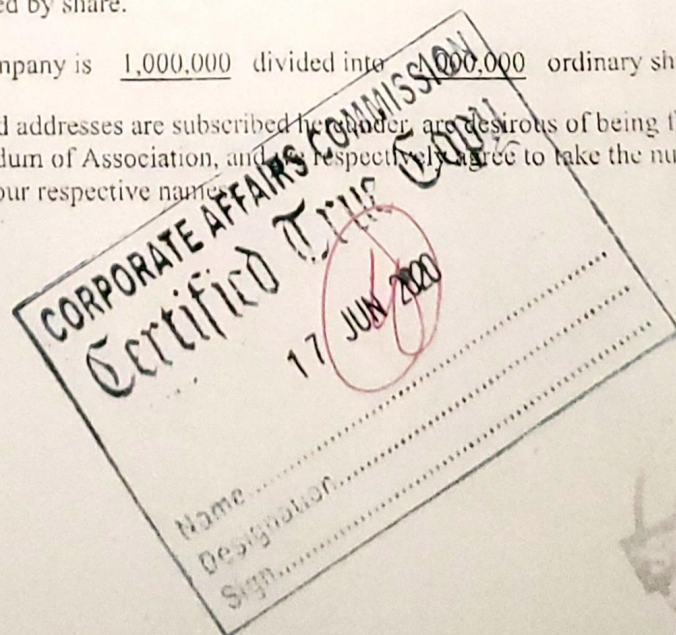 ed by share.
mpany is 1,000,000 divided into 1,000,000 ordinary sh
d addresses are subscribed hereunder, are desirous of being f
dum of Association, and respectively agree to take the nu
our respective names
CORPORATE AFFAIRS COMMISSION
Certified True Copy
17 JUN 2020
Name
Designation
Sign